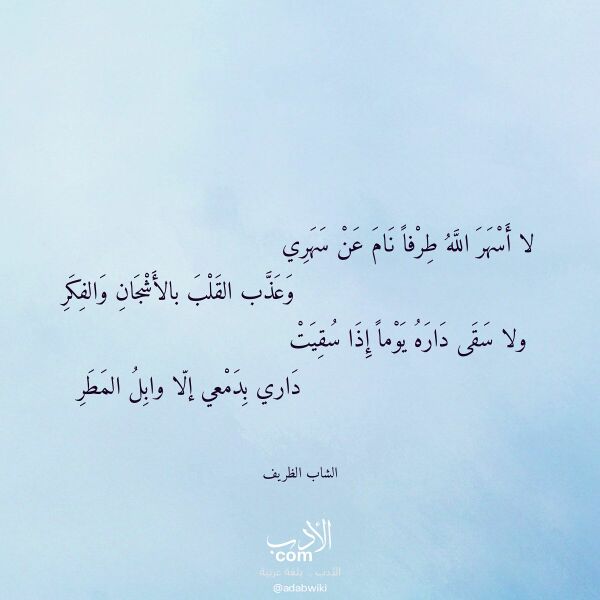 لا أَسْهَرَ اللَّهُ طِرْفاً نَامَ عَنْ سَهَرِي
وَعَذَّب القَلْبَ بالأَشْجَانِ وَالفِكَرِ
ولا سَقَى دَارَهُ يَوْماً إِذَا سُقِيَتْ
دَاري بِدَمْعي إلّا وابِلُ المَطَرِ
الشاب الظريف
الأدب
com
الأدب .. بلغة عربية
@adabwiki